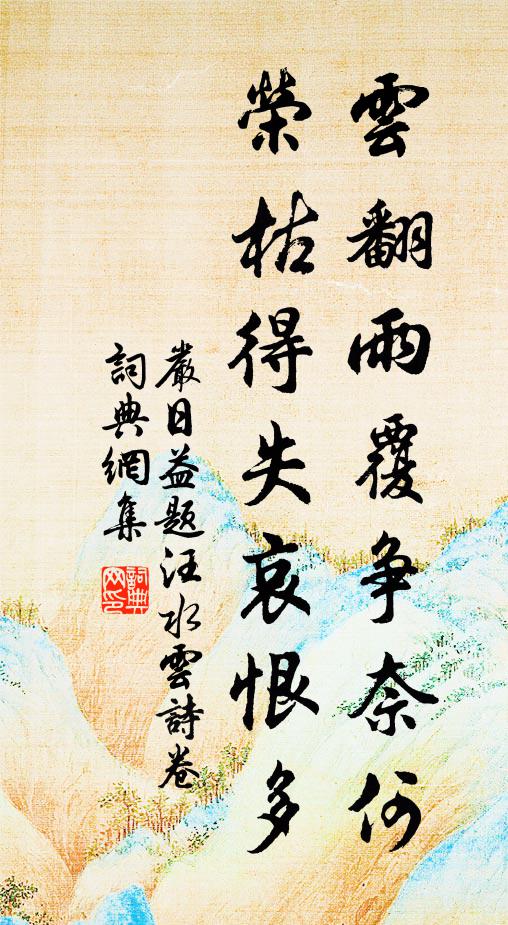 雲翻雨覆争奈何
榮枯得失哀恨多
嚴日益題汪水雲詩卷
詞典網集
詞典